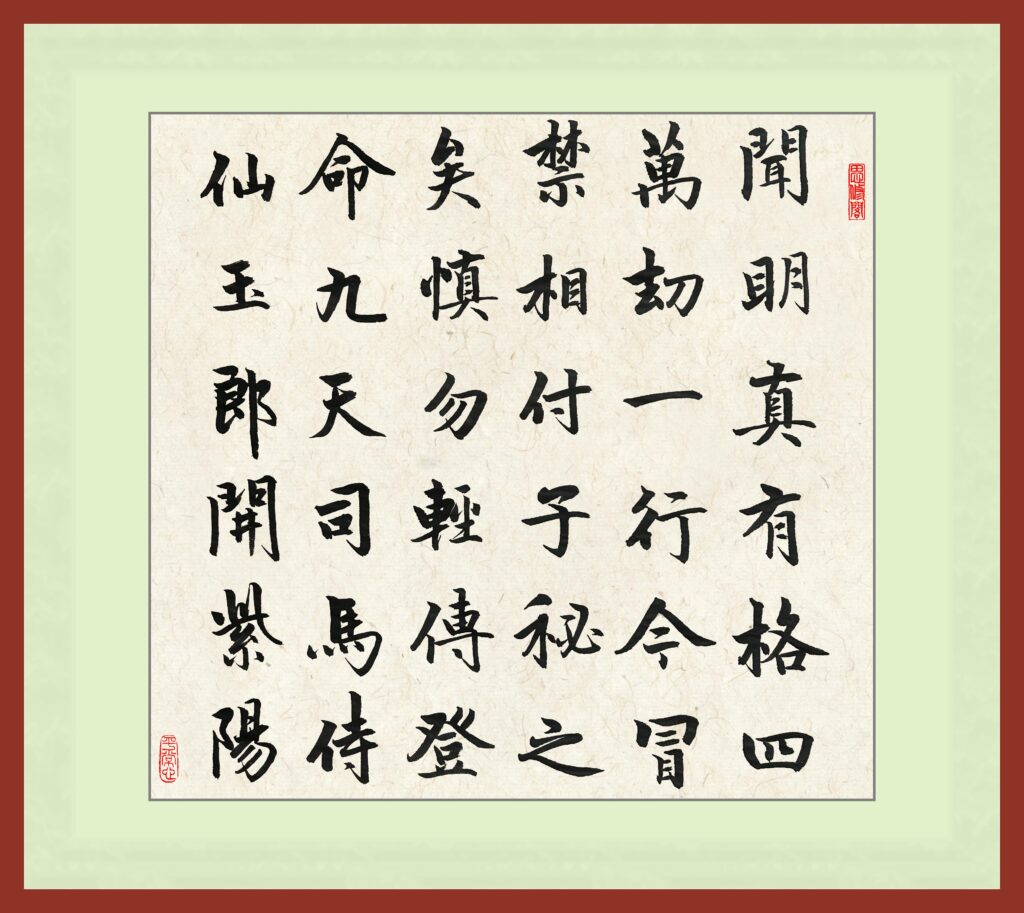 聞明真有格四
萬劫一行今冒
禁相付子秘之
矣慎勿輕傳登
命九天司馬侍
仙玉郎開紫陽
思修閣
平常心